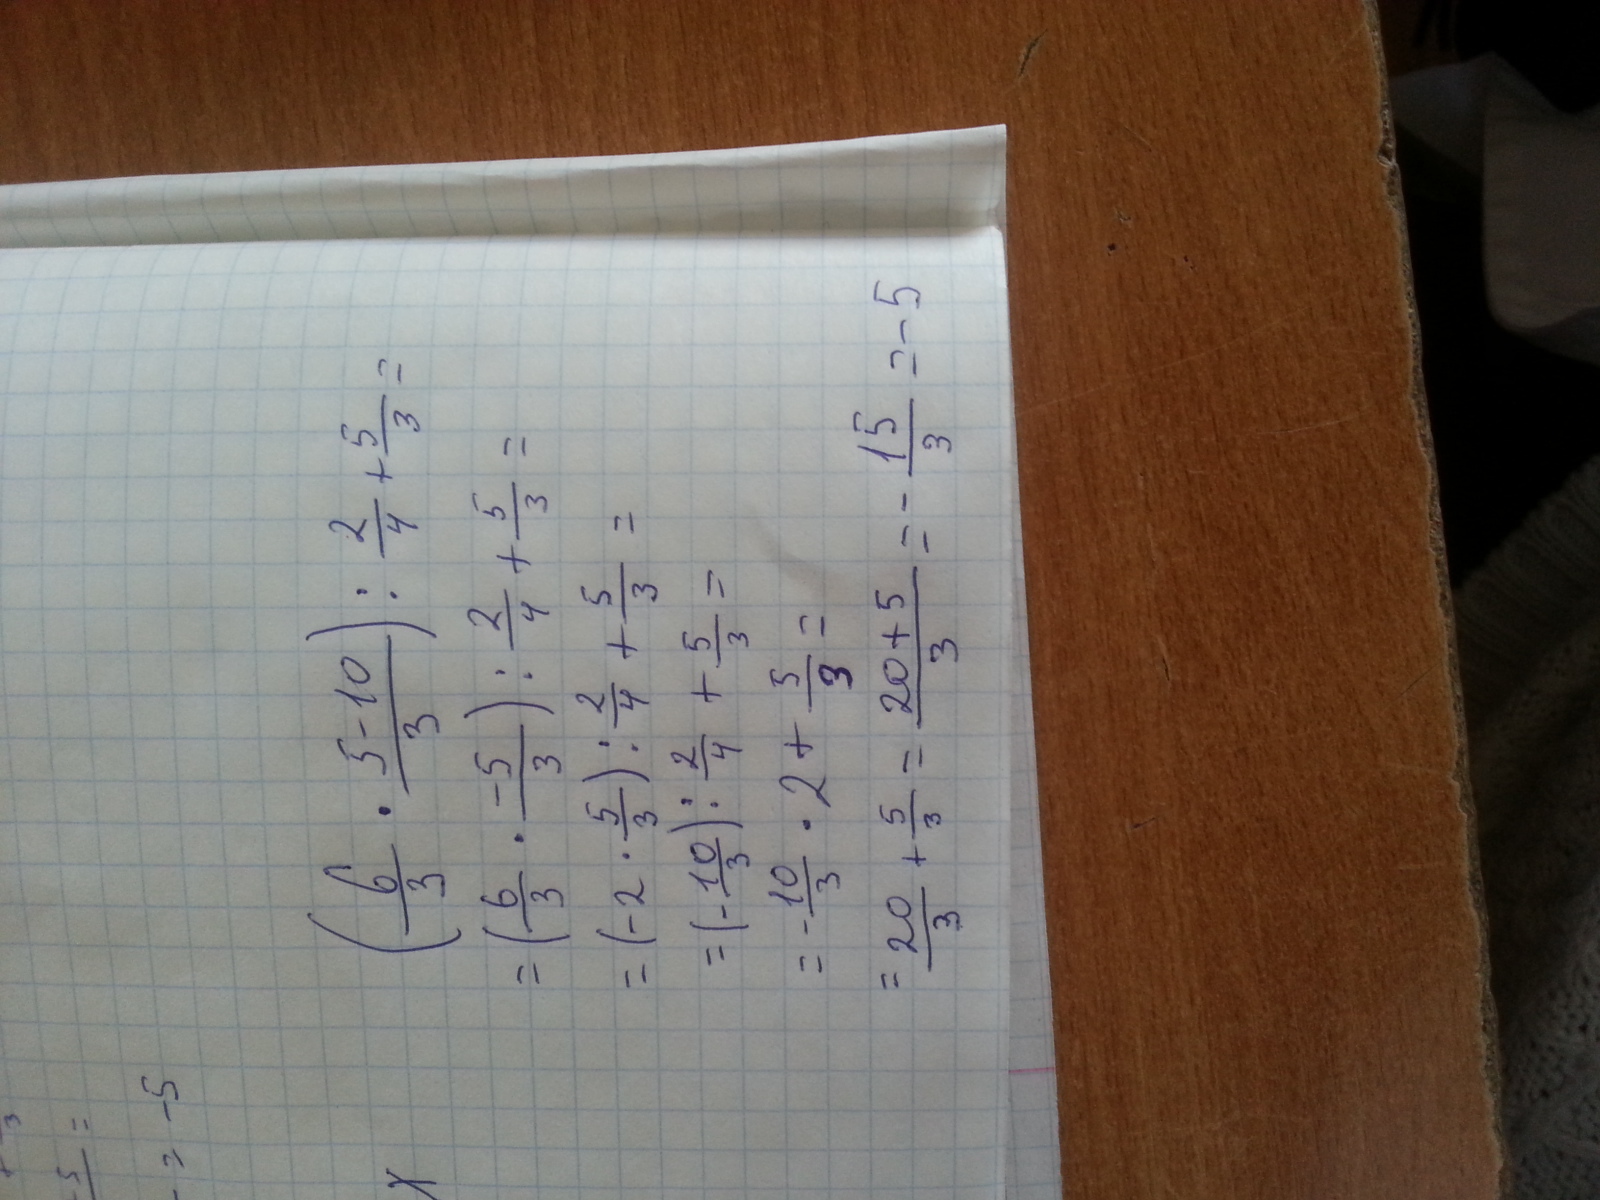 (6/3 · 5-10/3) : 2/4 + 5/3 =
= (6/3 · -5/3) : 2/4 + 5/3 =
= (-2 · 5/3) : 2/4 + 5/3 =
= (-10/3) : 2/4 + 5/3 =
= -10/3 · 2 + 5/3 =
= 20/3 + 5/3 = 20+5/3 = -15/3 = -5
3
5 =
= -5